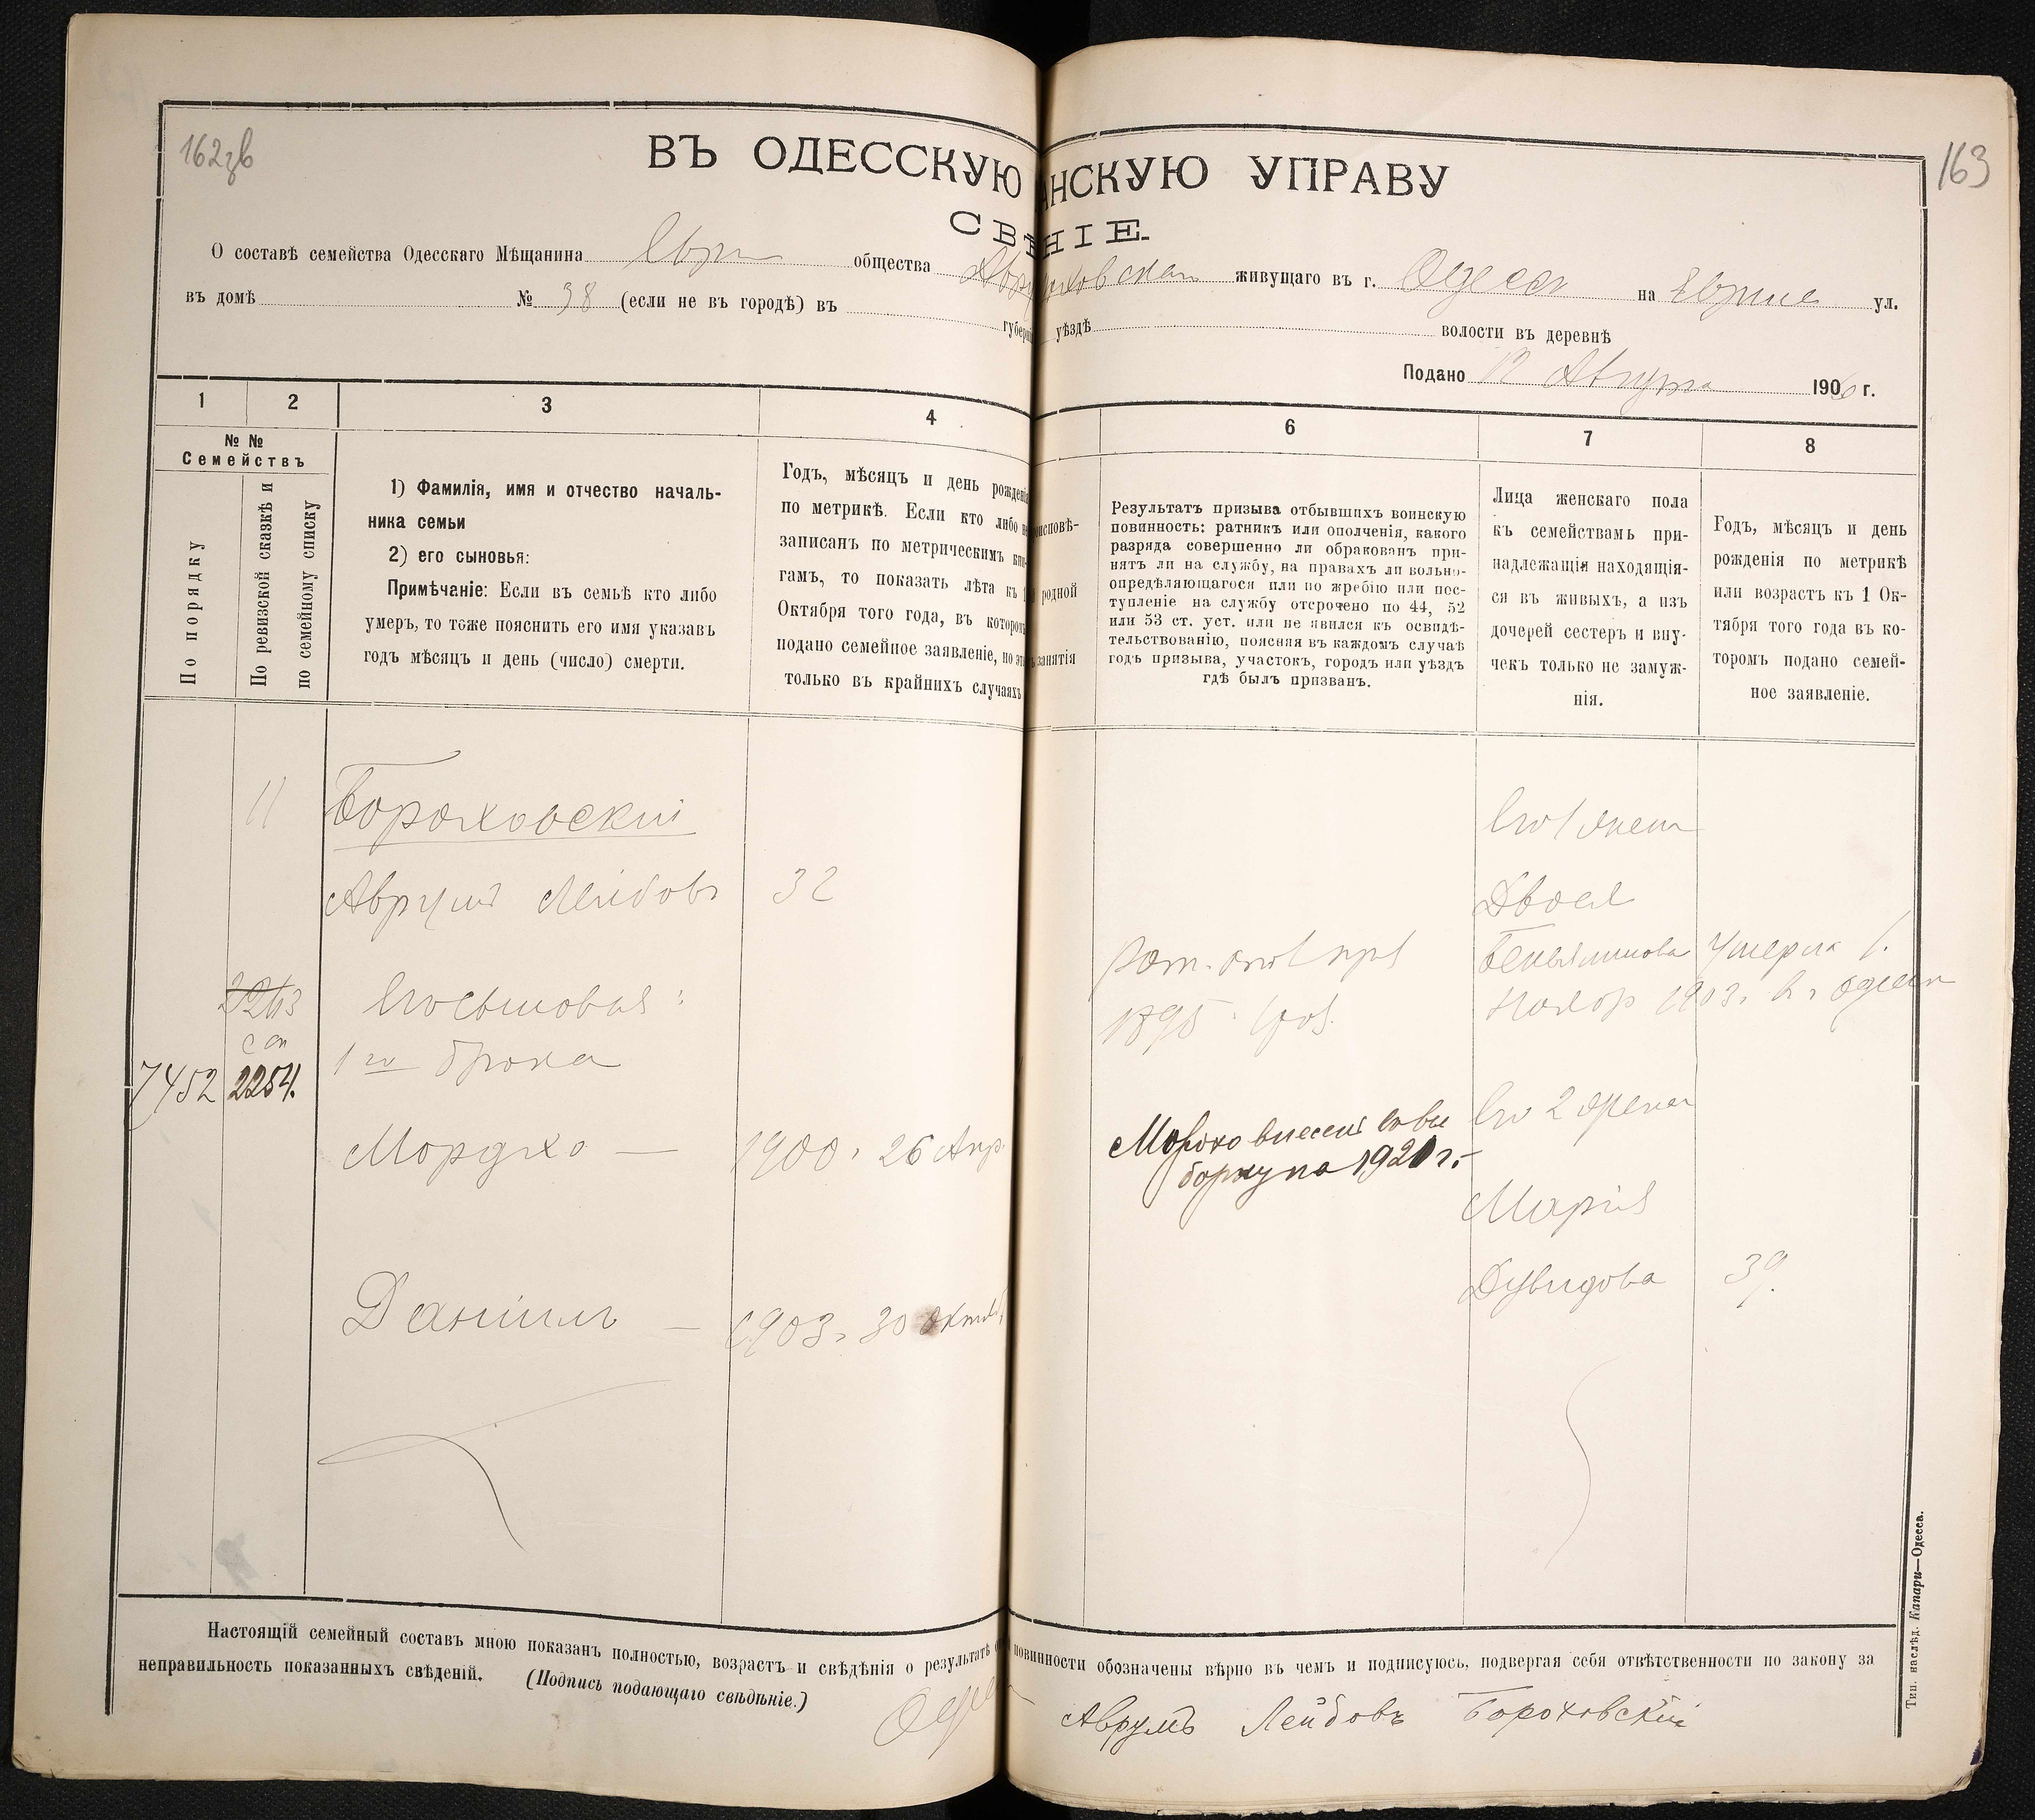 162зв
163
ВЪ ОДЕССКУЮ АНСКУЮ УПРАВУ
СВѢНІЕ.
О составѣ семейства Одесскаго Мѣщанина Евр общества живущаго въ г. Одесса на Еврейс ул.
въ домѣ № 38 (если не въ городѣ) въ губерні уѣздѣ волости въ деревнѣ
Подано 12 Августа 1906 г.
1 2 3 4 6 7 8
№ №
Семействъ
По порядку
По ревизской сказкѣ и
по семейному списку
1) Фамилія, имя и отчество началь-
ника семьи
2) его сыновья:
Примѣчаніе: Если въ семьѣ кто либо
умеръ, то тоже пояснить его имя указавъ
годъ мѣсяцъ и день (число) смерти.
Годъ, мѣсяцъ и день рожденія
по метрикѣ. Если кто либо не
записанъ по метрическимъ кни-
гамъ, то показать лѣта къ 1
Октября того года, въ которомъ
подано семейное заявленіе, но это
только въ крайнихъ случаяхъ
оисповѣ-
родной
занятія
Результатъ призыва отбывшихъ воинскую
повинность: ратникъ или ополченія, какого
разряда совершенно ли обракованъ при-
нятъ ли на службу, на правахъ ли вольно-
опредѣляющагося или по жребію или пос-
тупленіе на службу отсрочено по 44, 52
или 53 ст. уст. или не явился къ освидѣ-
тельствованію, поясняя въ каждомъ случаѣ
годъ призыва, участокъ, городъ или уѣздъ
гдѣ былъ призванъ.
Лица женскаго пола
къ семействамъ при-
надлежащія находящія-
ся въ живыхъ, а изъ
дочерей сестеръ и вну-
чекъ только не замуж-
нія.
Годъ, мѣсяцъ и день
рожденія по метрикѣ
или возрастъ къ 1 Ок-
тября того года въ ко-
торомъ подано семей-
ное заявленіе.
11
Бороховскій
Его 1 жена
Аврумъ Лейбовъ 32
Двося
Беньяминова Умерла 1
Ноябр 1903 г. въ Одессѣ
2263
сп
7452 2254.
Его сыновья:
1го брака
1895
Мордхо — 1900 г. 26 Апр.
Мордхо внесенъ
1921 г.
Его 2 жена
Марія
Дувидова 39.
Даніилъ — 1903 г. 30 Октяб
Настоящій семейный составъ мною показанъ полностью, возрастъ и свѣдѣнія о результатѣ о повинности обозначены вѣрно въ чемъ и подписуюсь, подвергая себя отвѣтственности по закону за
неправильность показанныхъ свѣденій. (Подпись подающаго свѣдѣніе.)
Аврумъ Лейбовъ Бороховскій
Тип. наслѣд. Капари—Одесса.